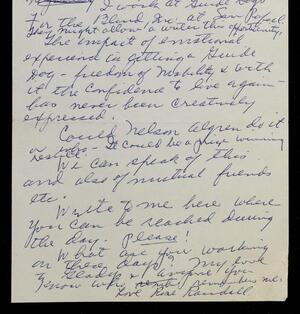 I work at Guide Dogs
For the Blind Inc. at San Rafael.
They might allow a writer this opportunity.
The impact of emotional
experience in getting a Guide
Dog - freedom of mobility & with
it the confidence to live again -
has never been creatively
expressed.
Could Nelson Algren do it
It could be a prize winning
respect.
We can speak of this
and also of mutual friends
etc.
Write to me here where
you can be reached during
the day - Please!
What are you working
on these days? My look
to Gladys & anyone you
know who remembers me.
Love Rose Randall